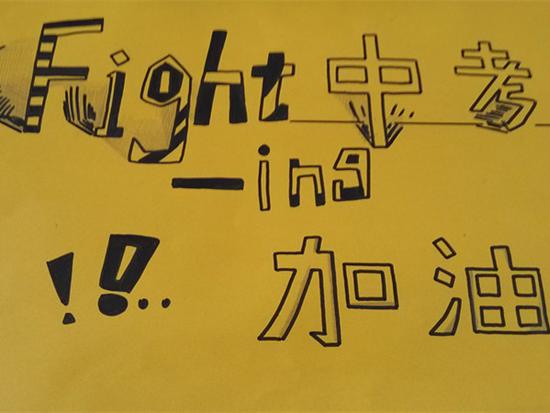 Fight 中考
-ing
!!.. 加油